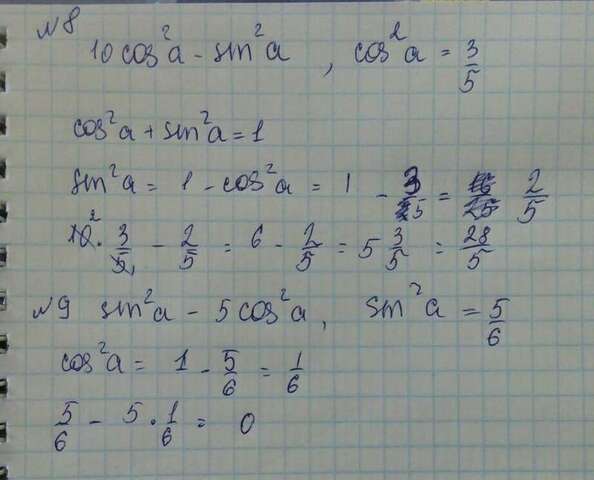 №8
10 cos²a - sin²a , cos²a = 3/5
cos²a + sin²a = 1
sin²a = 1 - cos²a = 1 - 3/5 = 2/5
10² · 3/5₁ - 2/5 = 6 - 2/5 = 5 3/5 = 28/5
№9 sin²a - 5 cos²a, sin²a = 5/6
cos²a = 1 - 5/6 = 1/6
5/6 - 5 · 1/6 = 0